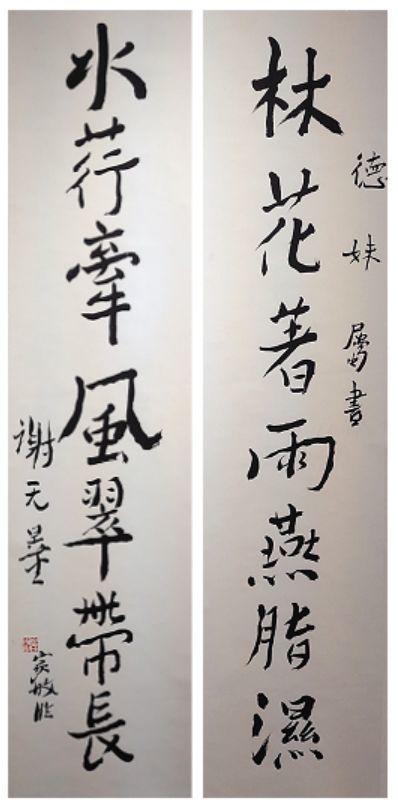 德妹屬書
林花著雨燕脂濕
水荇牽風翠帶長
謝无量